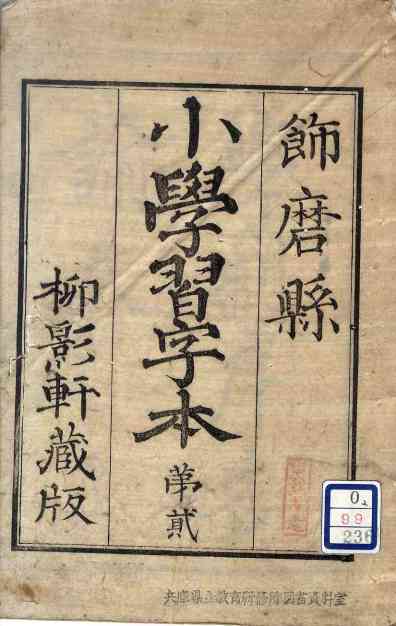 飾磨縣
小學習字本 第貳
柳影軒藏版
0
99
236
兵庫県立教育研修所図書資料室